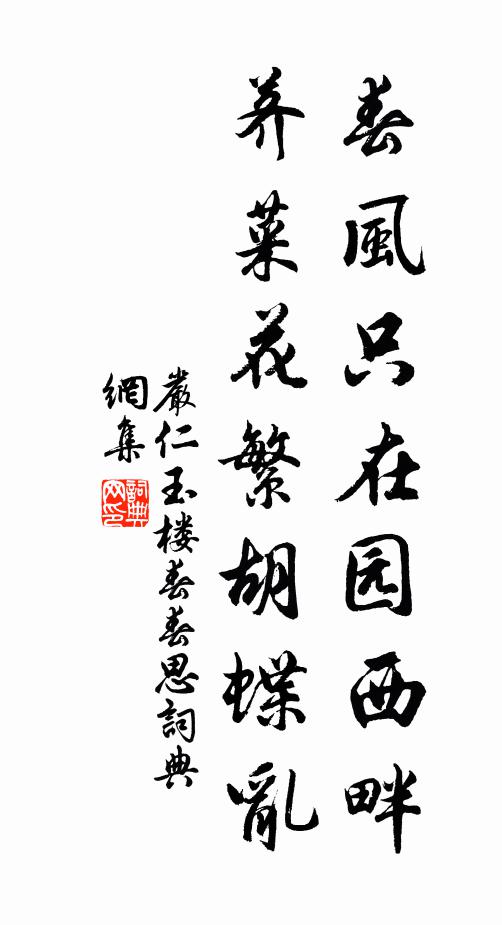 春風只在园西畔
荠菜花繁胡蝶亂
嚴仁玉楼春春思詞典
網集
詞典網印